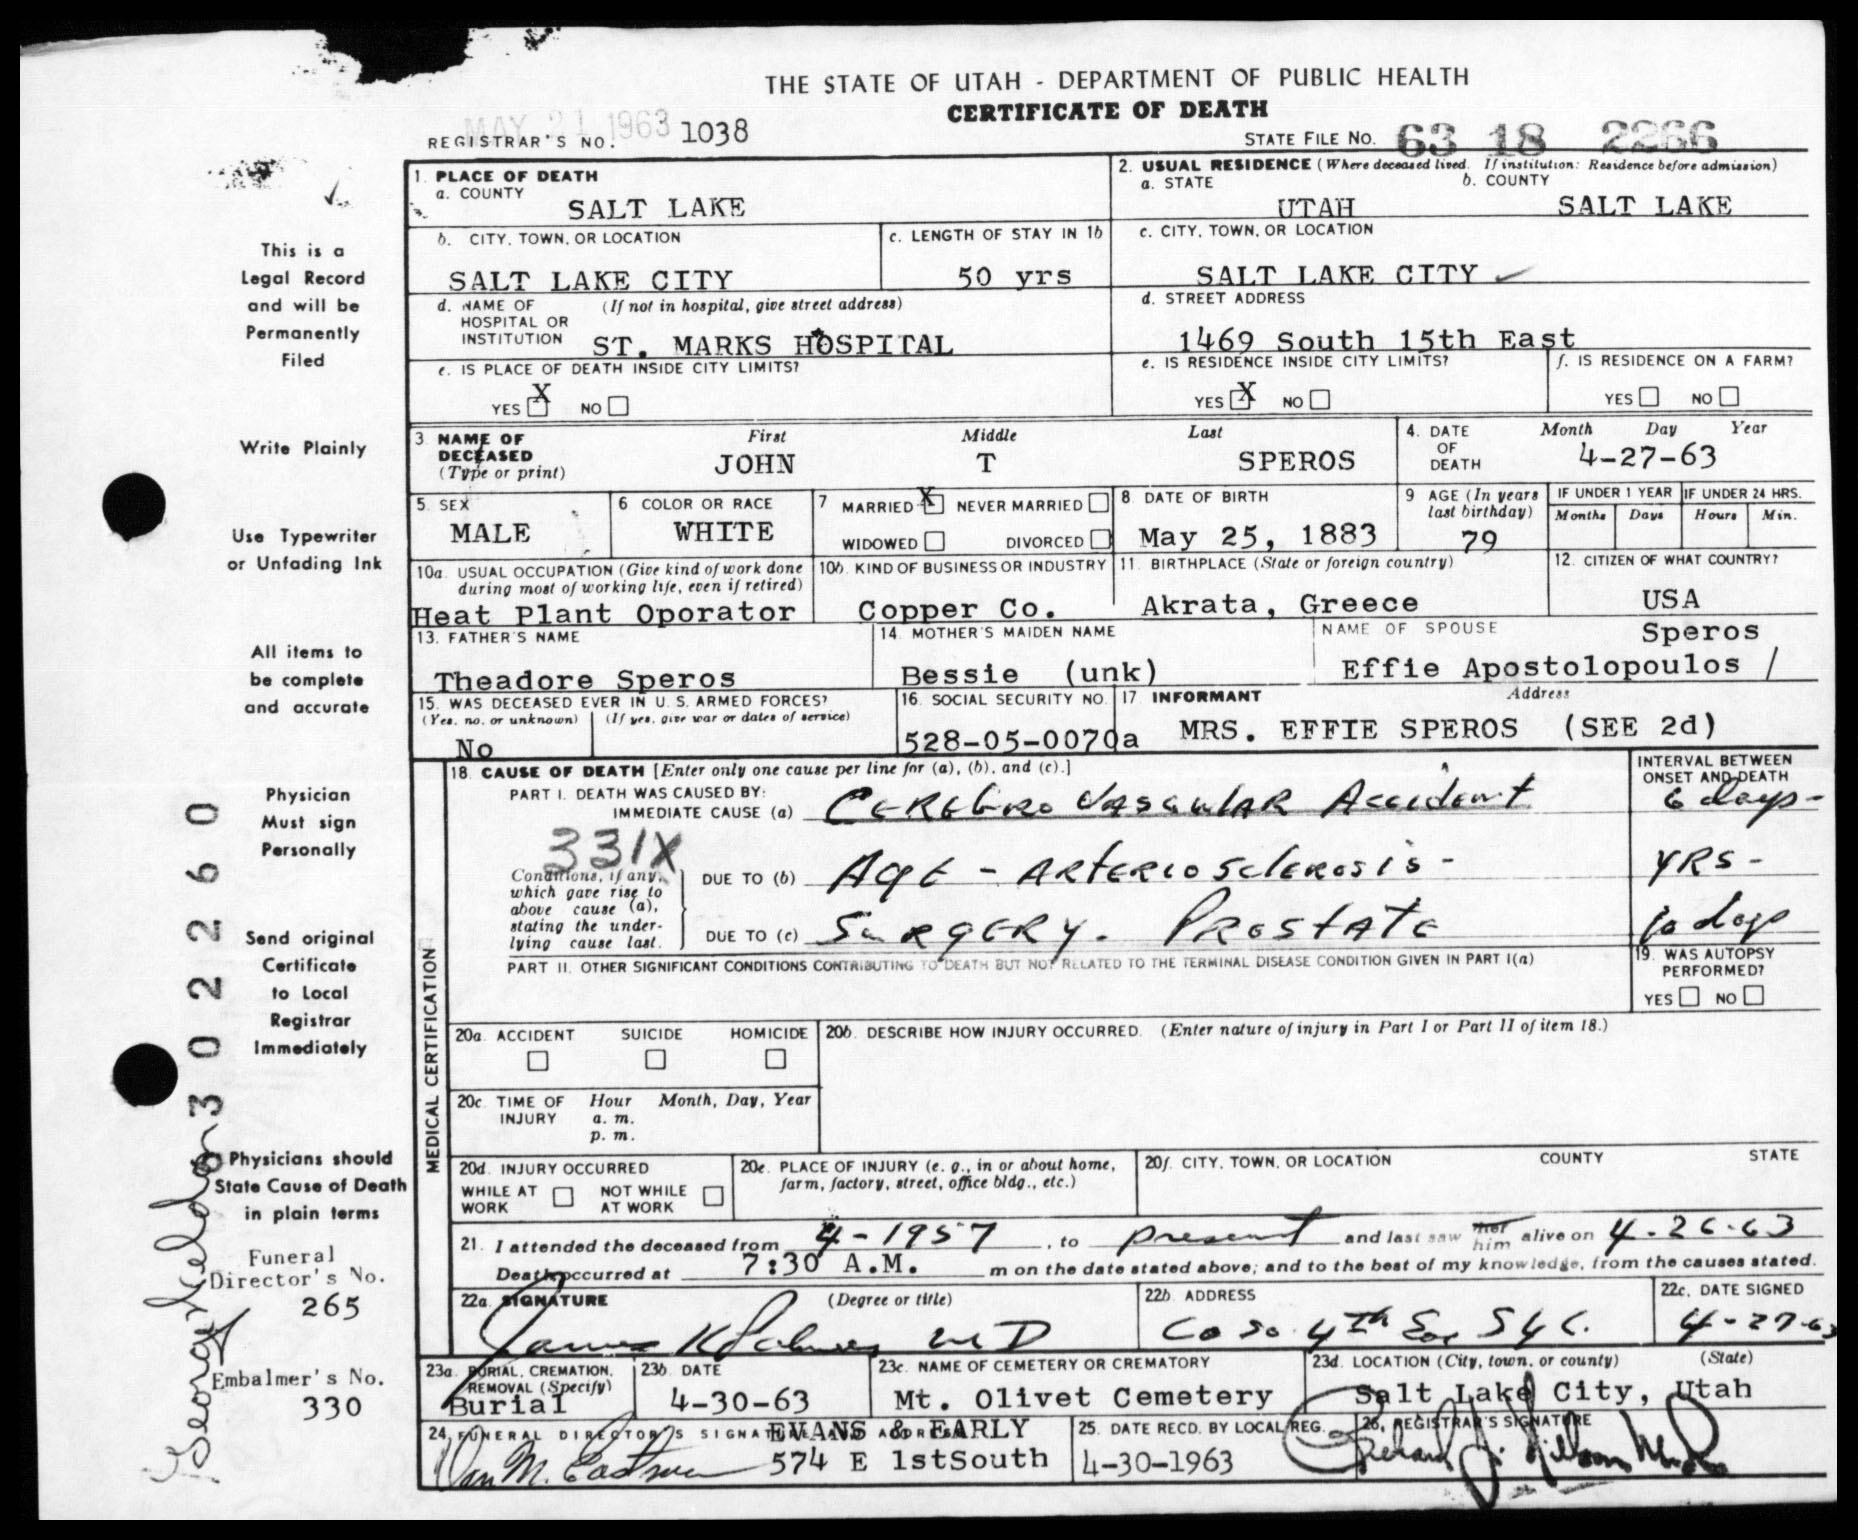 THE STATE OF UTAH - DEPARTMENT OF PUBLIC HEALTH
CERTIFICATE OF DEATH
MAY 21 1963
REGISTRAR'S NO. 1038
STATE FILE NO. 63 18 2266
1. PLACE OF DEATH
a. COUNTY
SALT LAKE
2. USUAL RESIDENCE (Where deceased lived. If institution: Residence before admission)
a. STATE b. COUNTY
UTAH SALT LAKE
b. CITY, TOWN, OR LOCATION
SALT LAKE CITY
c. LENGTH OF STAY IN 1b
50 yrs
c. CITY, TOWN, OR LOCATION
SALT LAKE CITY
d. NAME OF HOSPITAL OR INSTITUTION (If not in hospital, give street address)
ST. MARKS HOSPITAL
d. STREET ADDRESS
1469 South 15th East
e. IS PLACE OF DEATH INSIDE CITY LIMITS?
YES X NO
e. IS RESIDENCE INSIDE CITY LIMITS?
YES X NO
f. IS RESIDENCE ON A FARM?
YES NO
3. NAME OF DECEASED (Type or print)
First Middle Last
JOHN T SPEROS
4. DATE OF DEATH
Month Day Year
4-27-63
5. SEX
MALE
6 COLOR OR RACE
WHITE
7 MARRIED X NEVER MARRIED
WIDOWED DIVORCED
8 DATE OF BIRTH
May 25, 1883
9 AGE (In years last birthday)
79
IF UNDER 1 YEAR IF UNDER 24 HRS.
Months Days Hours Min.
10a. USUAL OCCUPATION (Give kind of work done during most of working life, even if retired)
Heat Plant Oporator
10b. KIND OF BUSINESS OR INDUSTRY
Copper Co.
11. BIRTHPLACE (State or foreign country)
Akrata, Greece
12. CITIZEN OF WHAT COUNTRY?
USA
13. FATHER'S NAME
Theadore Speros
14. MOTHER'S MAIDEN NAME
Bessie (unk)
NAME OF SPOUSE
Speros
Effie Apostolopoulos /
15. WAS DECEASED EVER IN U.S. ARMED FORCES?
(Yes, no, or unknown) (If yes, give war or dates of service)
No
16. SOCIAL SECURITY NO.
528-05-0070a
17. INFORMANT Address
MRS. EFFIE SPEROS (SEE 2d)
18. CAUSE OF DEATH [Enter only one cause per line for (a), (b), and (c).]
INTERVAL BETWEEN ONSET AND DEATH
PART I. DEATH WAS CAUSED BY:
IMMEDIATE CAUSE (a) Cerebro Vascular Accident 6 days -
331X
Conditions, if any, which gave rise to above cause (a), stating the underlying cause last.
DUE TO (b) Age - Arteriosclerosis - yrs -
DUE TO (c) Surgery. Prostate 10 days
PART II. OTHER SIGNIFICANT CONDITIONS CONTRIBUTING TO DEATH BUT NOT RELATED TO THE TERMINAL DISEASE CONDITION GIVEN IN PART I(a)
19. WAS AUTOPSY PERFORMED?
YES NO
MEDICAL CERTIFICATION
20a. ACCIDENT SUICIDE HOMICIDE
20b. DESCRIBE HOW INJURY OCCURRED. (Enter nature of injury in Part I or Part II of item 18.)
20c. TIME OF INJURY Hour Month, Day, Year
a. m.
p. m.
20d. INJURY OCCURRED
WHILE AT WORK NOT WHILE AT WORK
20e. PLACE OF INJURY (e. g., in or about home, farm, factory, street, office bldg., etc.)
20f. CITY, TOWN, OR LOCATION COUNTY STATE
21. I attended the deceased from 4-1957, to present and last saw her him alive on 4-26-63
Death occurred at 7:30 A.M. m on the date stated above; and to the best of my knowledge, from the causes stated.
22a. SIGNATURE (Degree or title)
James K Palmer MD
22b. ADDRESS
4th
22c. DATE SIGNED
4-27-63
23a. BURIAL, CREMATION, REMOVAL (Specify)
Burial
23b. DATE
4-30-63
23c. NAME OF CEMETERY OR CREMATORY
Mt. Olivet Cemetery
23d. LOCATION (City, town, or county) (State)
Salt Lake City, Utah
24. FUNERAL DIRECTOR'S SIGNATURE AND ADDRESS
EVANS & EARLY
574 E 1stSouth
Van M. Eastman
25. DATE RECD. BY LOCAL REG.
4-30-1963
26. REGISTRAR'S SIGNATURE
This is a
Legal Record
and will be
Permanently
Filed
Write Plainly
Use Typewriter
or Unfading Ink
All items to
be complete
and accurate
Physician
Must sign
Personally
Send original
Certificate
to Local
Registrar
Immediately
Physicians should
State Cause of Death
in plain terms
Funeral
Director's No.
265
Embalmer's No.
330
3022260
George